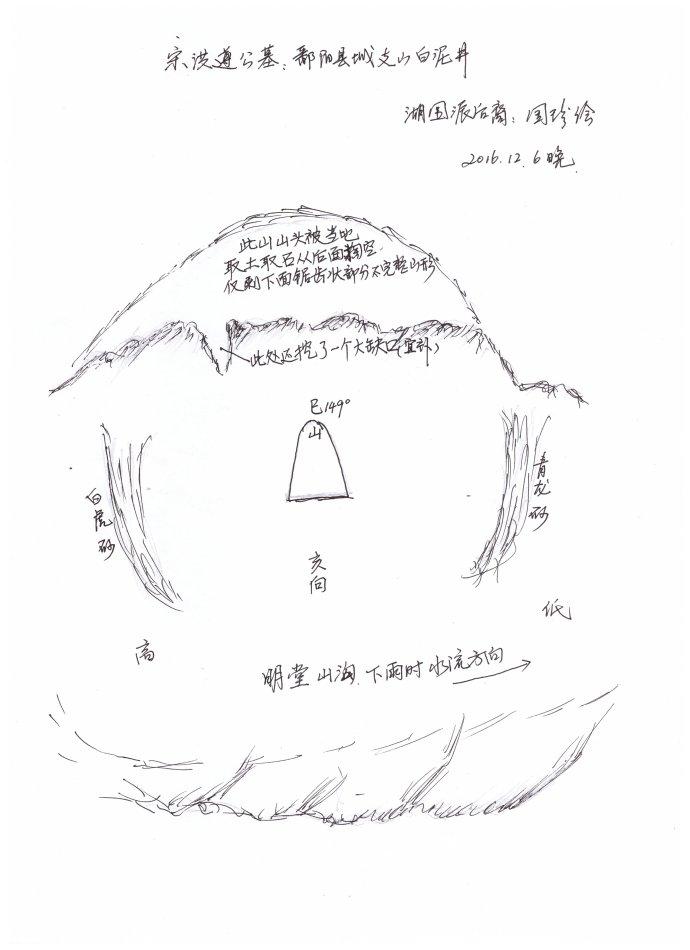 宗洪遵公墓：鄱阳县城芝山白泥井
湖田派后裔：国珍绘
2016.12.6晚
此山山头被当地
取土取石从后面掏空
仅剩下面锯齿状部分不完整山形
此处还挖了一个大缺口(宜补)
巳149°
山
白虎砂
青龙砂
亥向
高
低
明堂山沟 下雨时水流方向